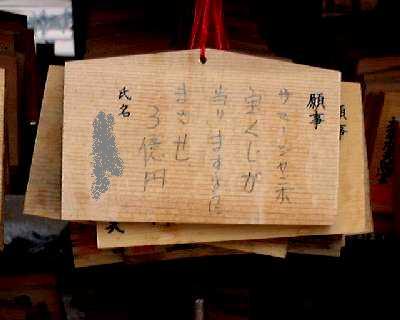 願事
サマージャンボ
宝くじが
当りますように
まさせ
3億円
氏名
願事